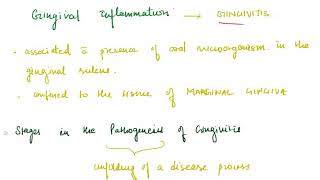 Gingival Inflammation → GINGIVITIS
• associated c̄ presence of oral microorganism in the
gingival sulcus.
• confined to the tissue of MARGINAL GINGIVA
• Stages in the Pathogenesis of Gingivitis
unfolding of a disease process